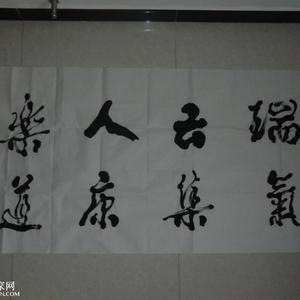 瑞氣
云集
人康
樂道
家网